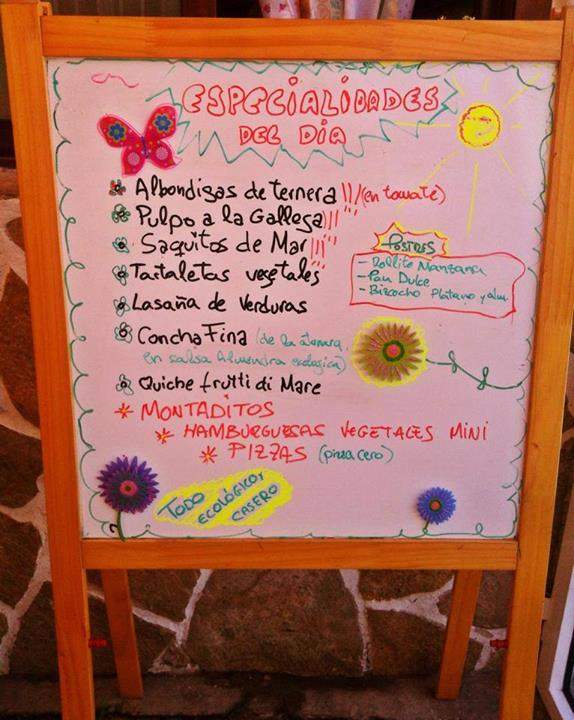 ESPECIALIDADES
DEL DIA
Albondigas de ternera (en tomate)
Pulpo a la Gallega
Saquitos de Mar
Tartaletas vegetales
Lasaña de Verduras
Concha Fina (de la
en salsa Almendra ecologica)
Quiche frutti di Mare
MONTADITOS
HAMBURGUESAS VEGETALES MINI
PIZZAS
POSTRES
- Rollito Manzana
- Pan Dulce
- Bizcocho Platano y
TODO
ECOLÓGICO Y
CASERO